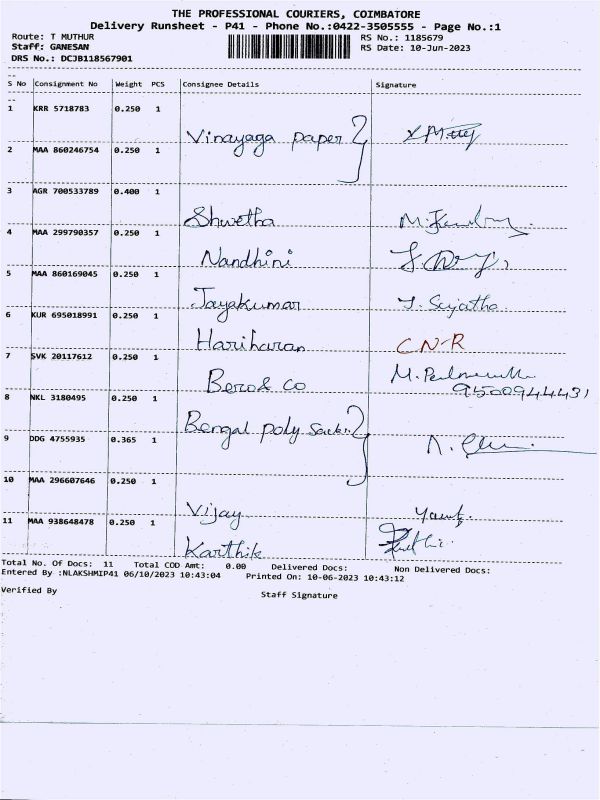 THE PROFESSIONAL COURIERS, COIMBATORE
Delivery Runsheet - P41 - Phone No.:0422-3505555 - Page No.:1
Route: T MUTHUR RS No.: 1185679
Staff: GANESAN RS Date: 10-Jun-2023
DRS No.: DCJB118567901
S No Consignment No Weight PCS Consignee Details Signature
1 KRR 5718783 0.250 1
Vinayaga paper
2 MAA 860246754 0.250 1
3 AGR 700533789 0.400 1
Shwetha
4 MAA 299790357 0.250 1
Nandhini
5 MAA 860169045 0.250 1
Jayakumar J. Sujatha
6 KUR 695018991 0.250 1
Hariharan C-N-R
7 SVK 20117612 0.250 1
Bero& co M.
9500944431
8 NKL 3180495 0.250 1
Bengal poly
9 DDG 4755935 0.365 1
10 MAA 296607646 0.250 1
Vijay
11 MAA 938648478 0.250 1
Karthik
Total No. Of Docs: 11 Total COD Amt: 0.00 Delivered Docs: Non Delivered Docs:
Entered By :NLAKSHMIP41 06/10/2023 10:43:04 Printed On: 10-06-2023 10:43:12
Verified By
Staff Signature